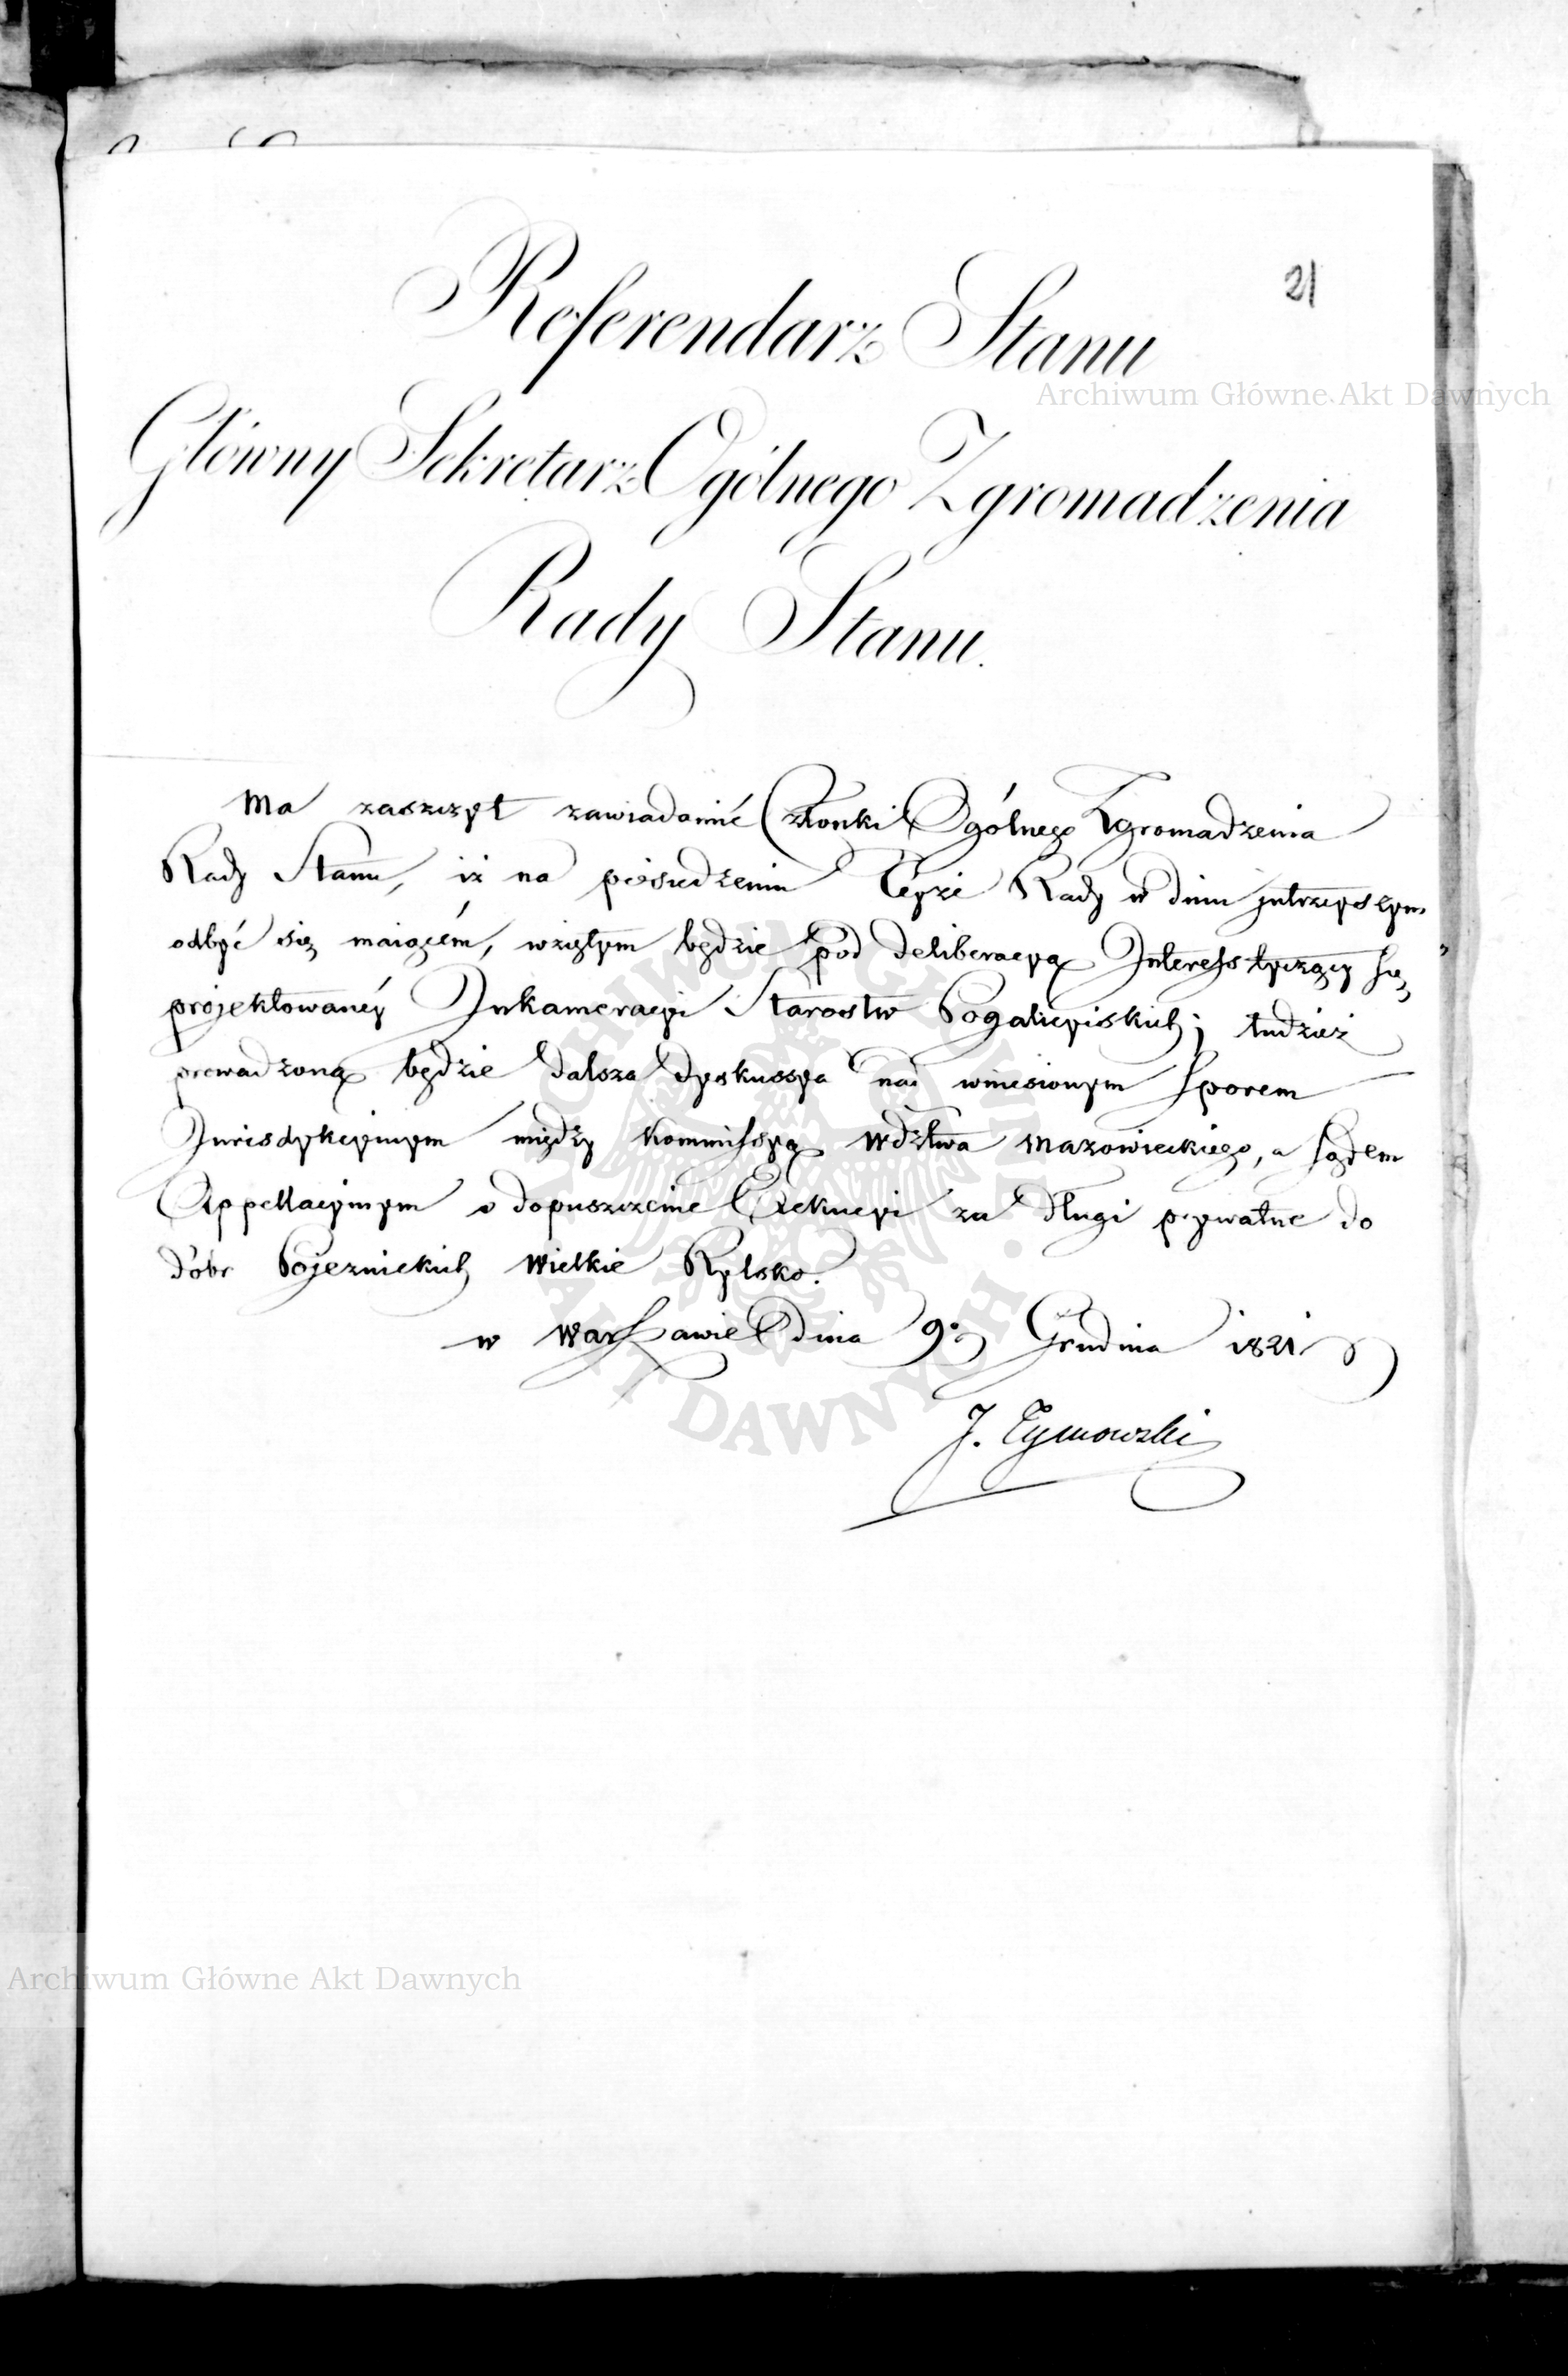 21
Referendarz Stanu
Główny Sekretarz Ogólnego Zgromadzenia
Rady Stanu.
Ma zaszczyt zawiadomić Członki Ogólnego Zgromadzenia
Rady Stanu, iż na posiedzeniu Teyże Rady w dniu jutrzeyszym
odbyć się maiącém, wziętym będzie pod deliberacyą Interess tyczący się
projektowanéy Inkameracyi Starostw Pogalicyiskich; tudzież
prowadzoną będzie dalsza dyskussya nad wniesionym sporem
Jurisdykcyinym między Kommissyą Wdztwa Mazowieckiego, a Sądem
Appellacyinym o dopuszczenie Exekucyi za długi prywatne do
dóbr Pojezuickich Wielkie Rylsko.
w Warszawie dnia 9. Grudnia 1821
J. Tymowski
Archiwum Główne Akt Dawnych
Archiwum Główne Akt Dawnych
ARCHIWUM GŁÓWNE AKT DAWNYCH